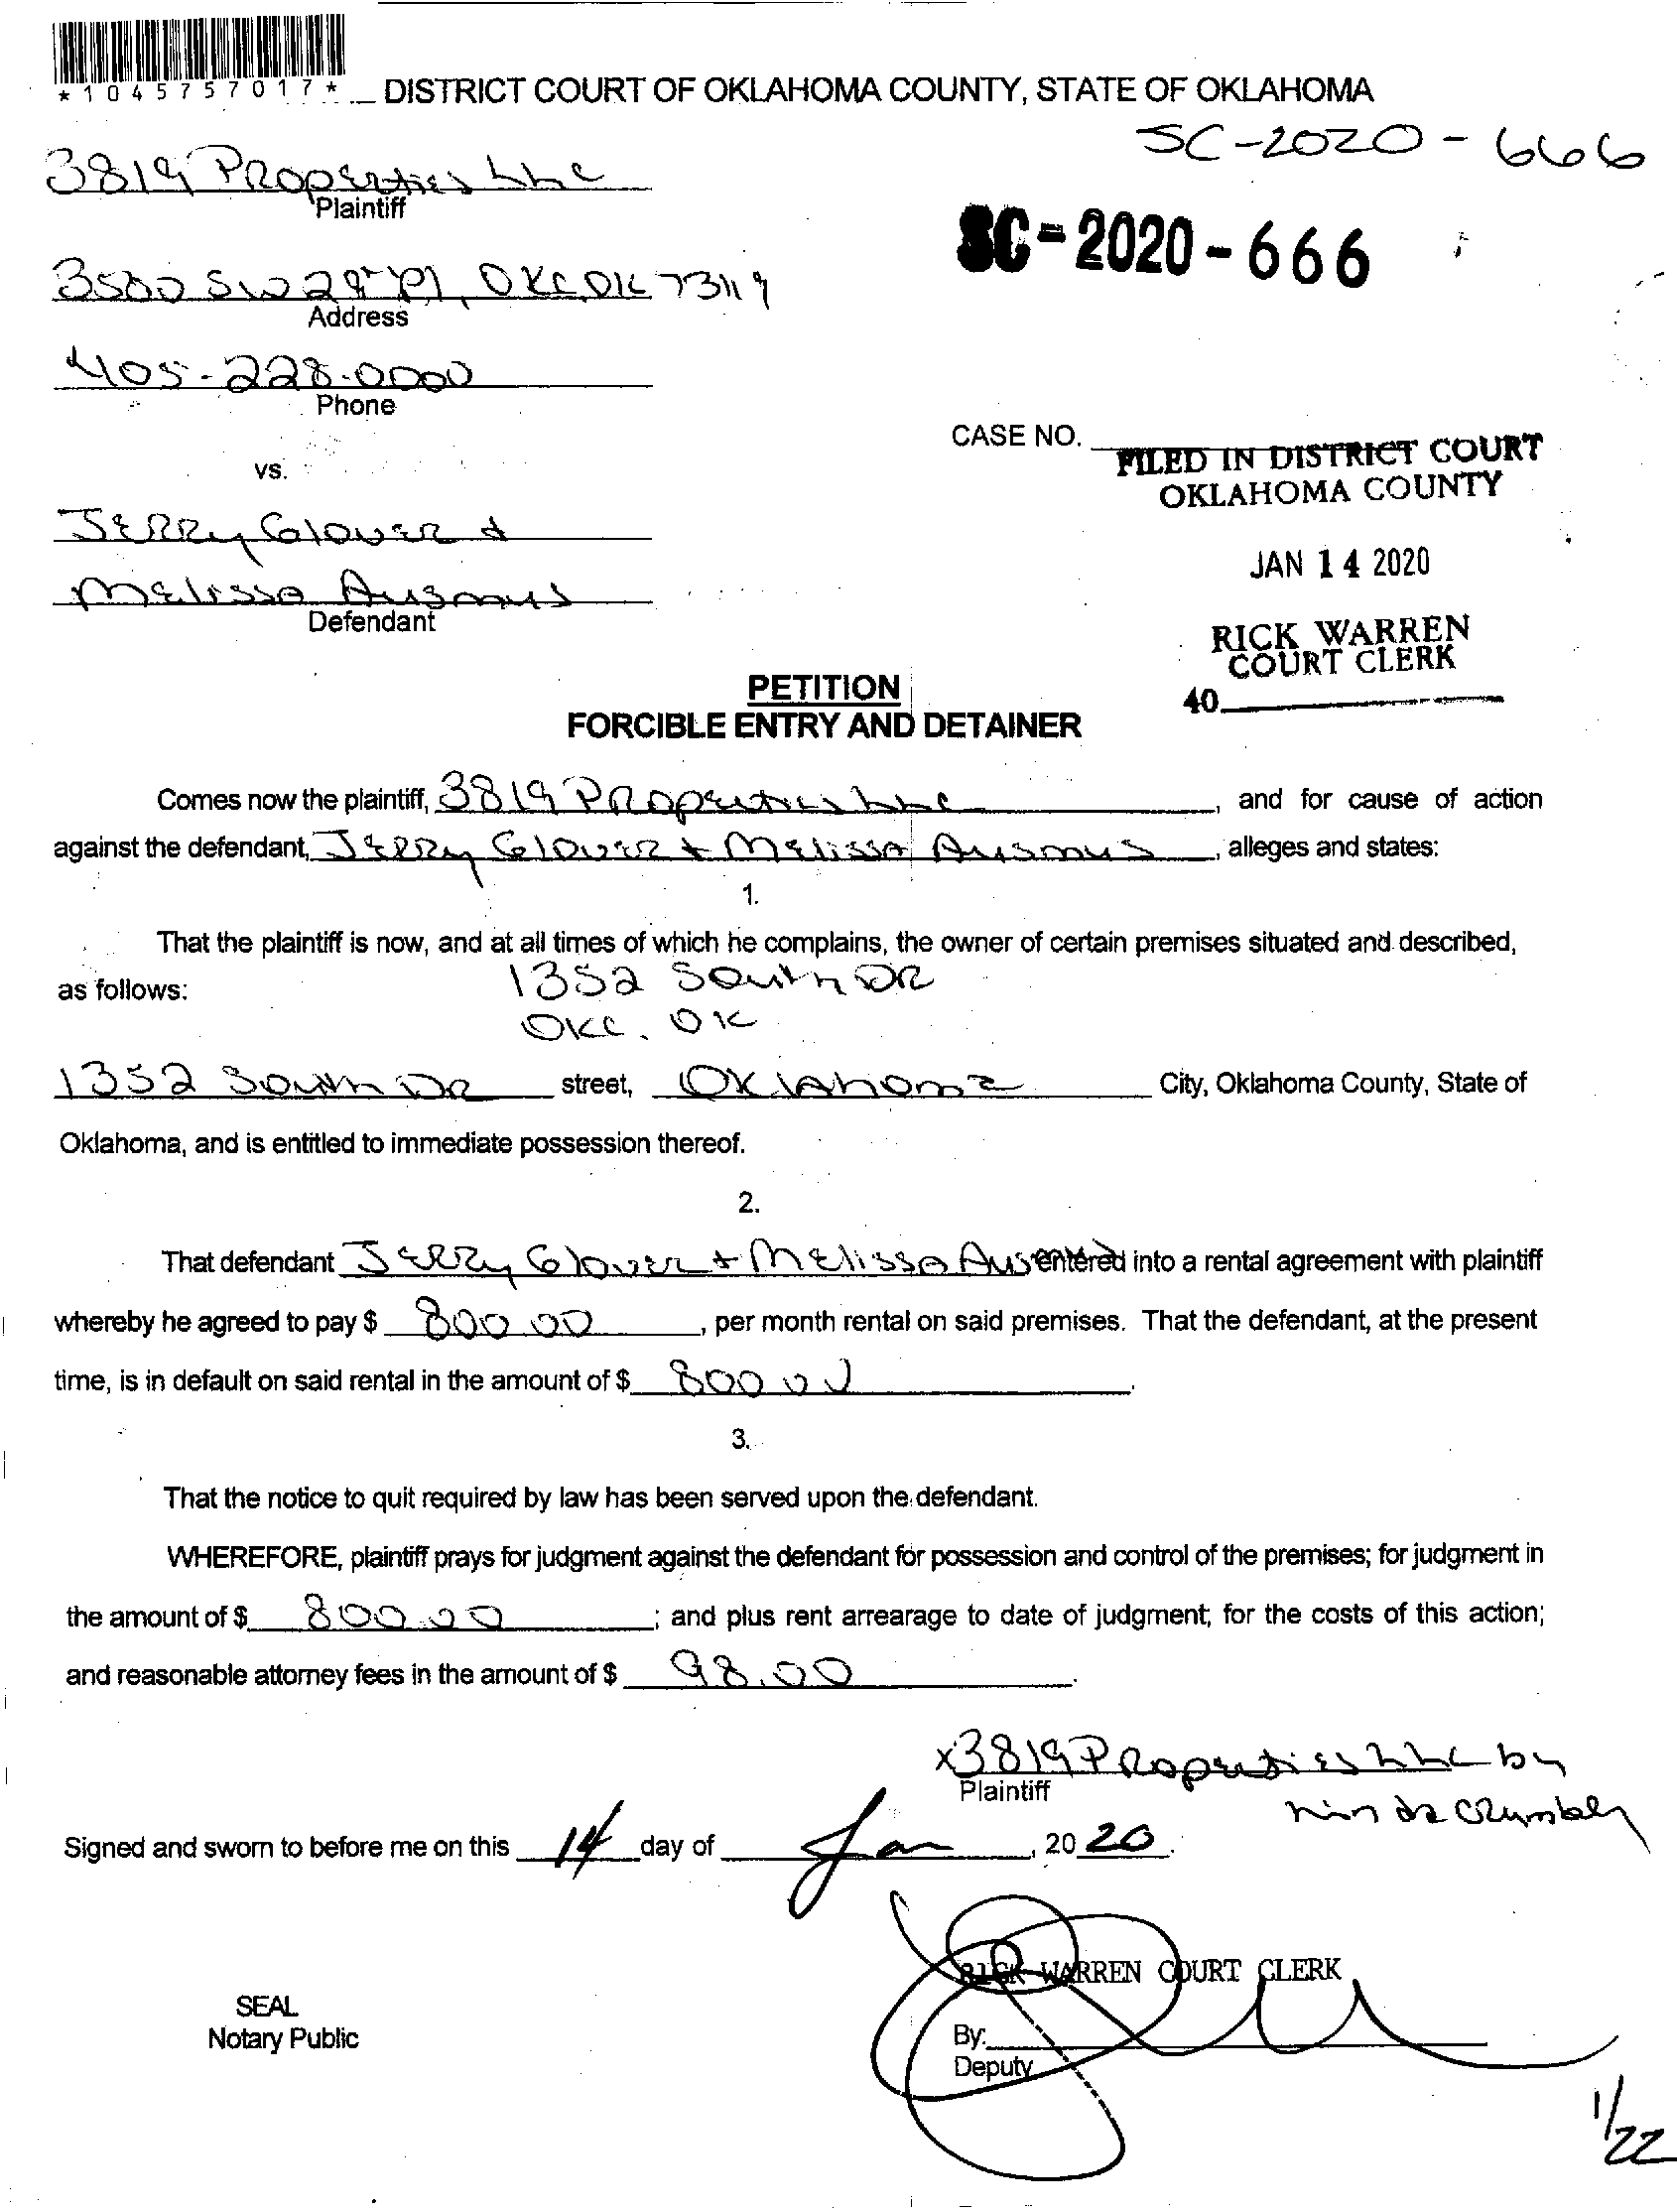 *1045757017*
DISTRICT COURT OF OKLAHOMA COUNTY, STATE OF OKLAHOMA
SC-2020-666
3819 Properties LLC
Plaintiff
SC-2020-666
3500 SW 29th Pl, OKC, OK 73119
Address
405-228-0000
Phone
CASE NO.
FILED IN DISTRICT COURT
OKLAHOMA COUNTY
vs.
Jerry Glover &
JAN 14 2020
Melissa Ausmus
Defendant
RICK WARREN
COURT CLERK
40
PETITION
FORCIBLE ENTRY AND DETAINER
Comes now the plaintiff, 3819 Properties LLC, and for cause of action
against the defendant, Jerry Glover + Melissa Ausmus, alleges and states:
1.
That the plaintiff is now, and at all times of which he complains, the owner of certain premises situated and described,
as follows: 1352 South DR
OKC, OK
1352 South DR street, Oklahoma City, Oklahoma County, State of
Oklahoma, and is entitled to immediate possession thereof.
2.
That defendant Jerry Glover + Melissa Aus entered into a rental agreement with plaintiff
whereby he agreed to pay $ 800.00, per month rental on said premises. That the defendant, at the present
time, is in default on said rental in the amount of $ 800.00.
3.
That the notice to quit required by law has been served upon the defendant.
WHEREFORE, plaintiff prays for judgment against the defendant for possession and control of the premises; for judgment in
the amount of $ 800.00; and plus rent arrearage to date of judgment; for the costs of this action;
and reasonable attorney fees in the amount of $ 98.00.
x 3819 Properties LLC by
Plaintiff
Linda Crumbley
Signed and sworn to before me on this 14 day of Jan, 2020.
RICK WARREN COURT CLERK
SEAL
Notary Public
By:
Deputy
1/22